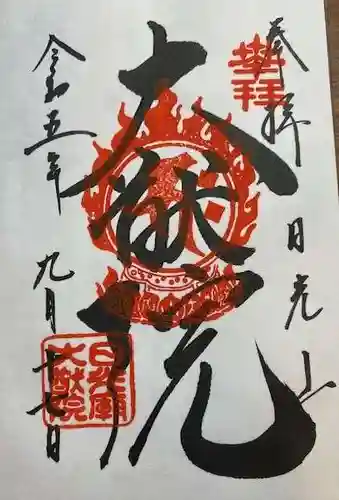 奉拝
日光山
大猷院
令和五年
九月十七日
奉拝
日光廟
大猷院